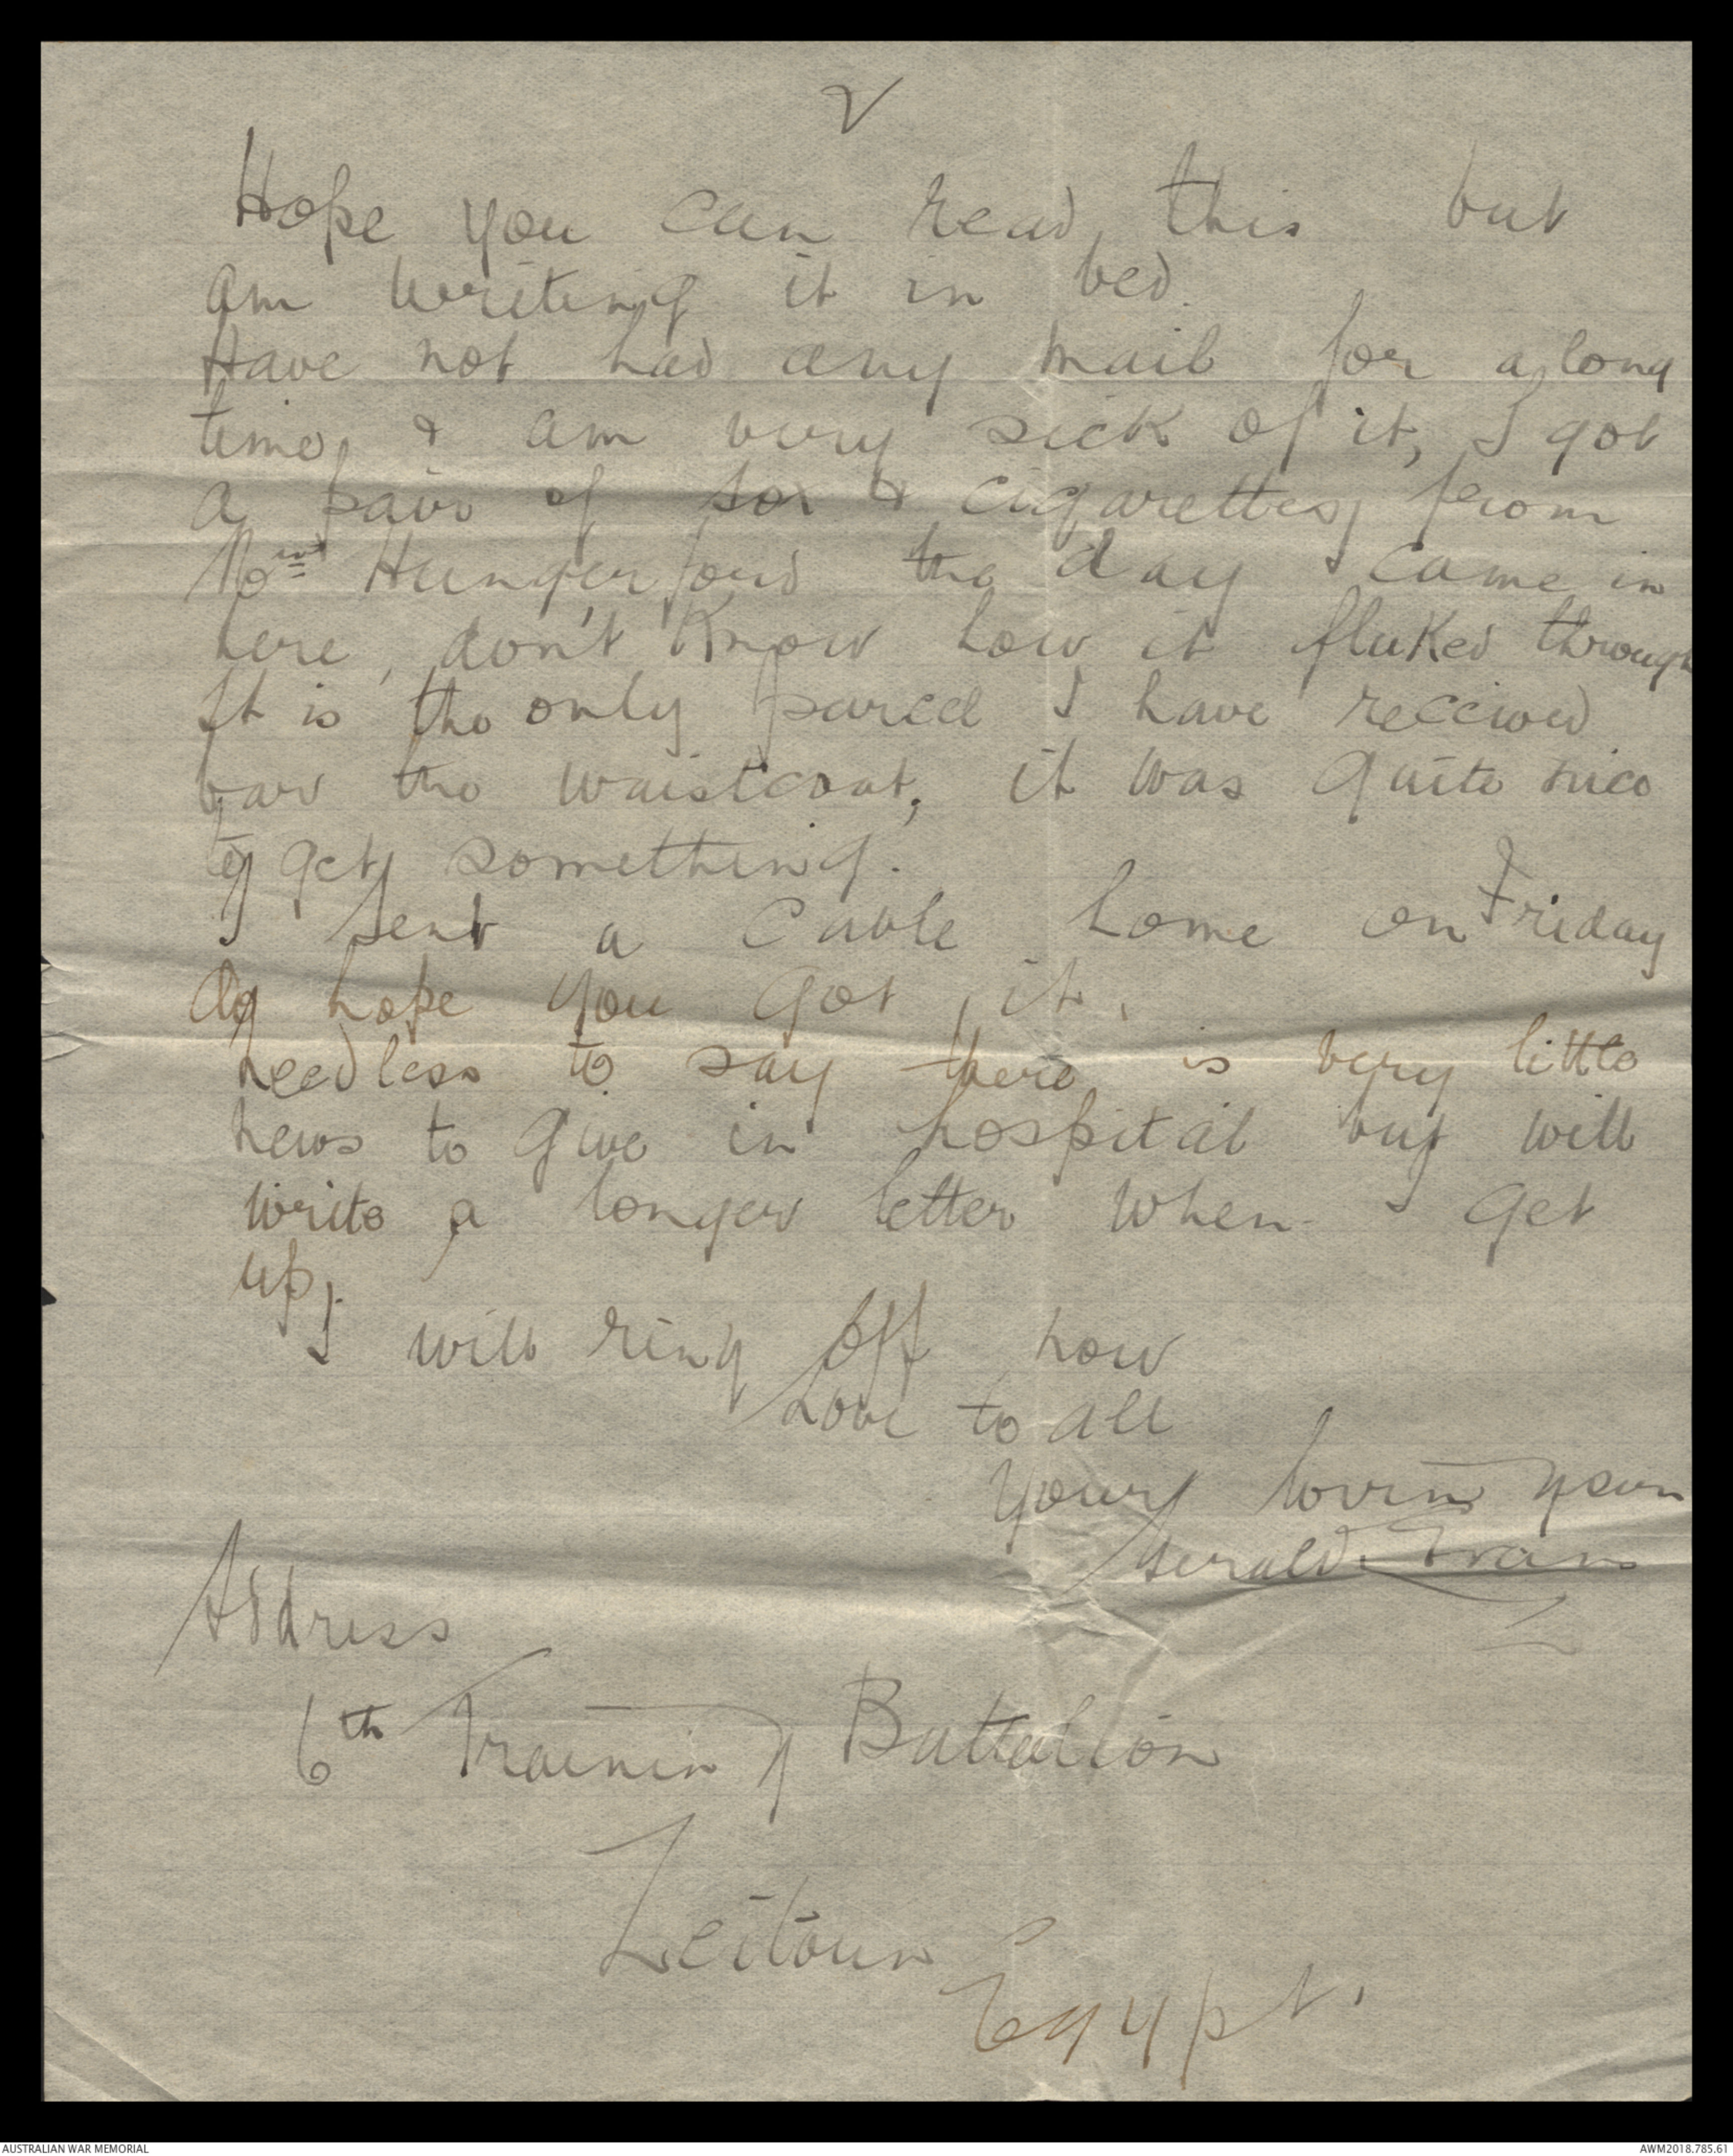 2
Hope you can read this but
am writing it in bed.
Have not had any mail for a long
time & am very sick of it, I got
a pair of sox & cigarettes from
Hungerford the day I came in
here, don't know how it fluked through
It is the only parcel I have received
bar the waistcoat, it was quite nice
to get something.
I sent a cable home on Friday
do hope you got it.
needless to say there is very little
news to give in hospital but will
write a longer letter when I get
up.
I will ring off now
Love to all
Your loving son
Gerald Evans
Address
6th Training Battalion
Zeitoun
Egypt.
AUSTRALIAN WAR MEMORIAL
AWM2018.785.61